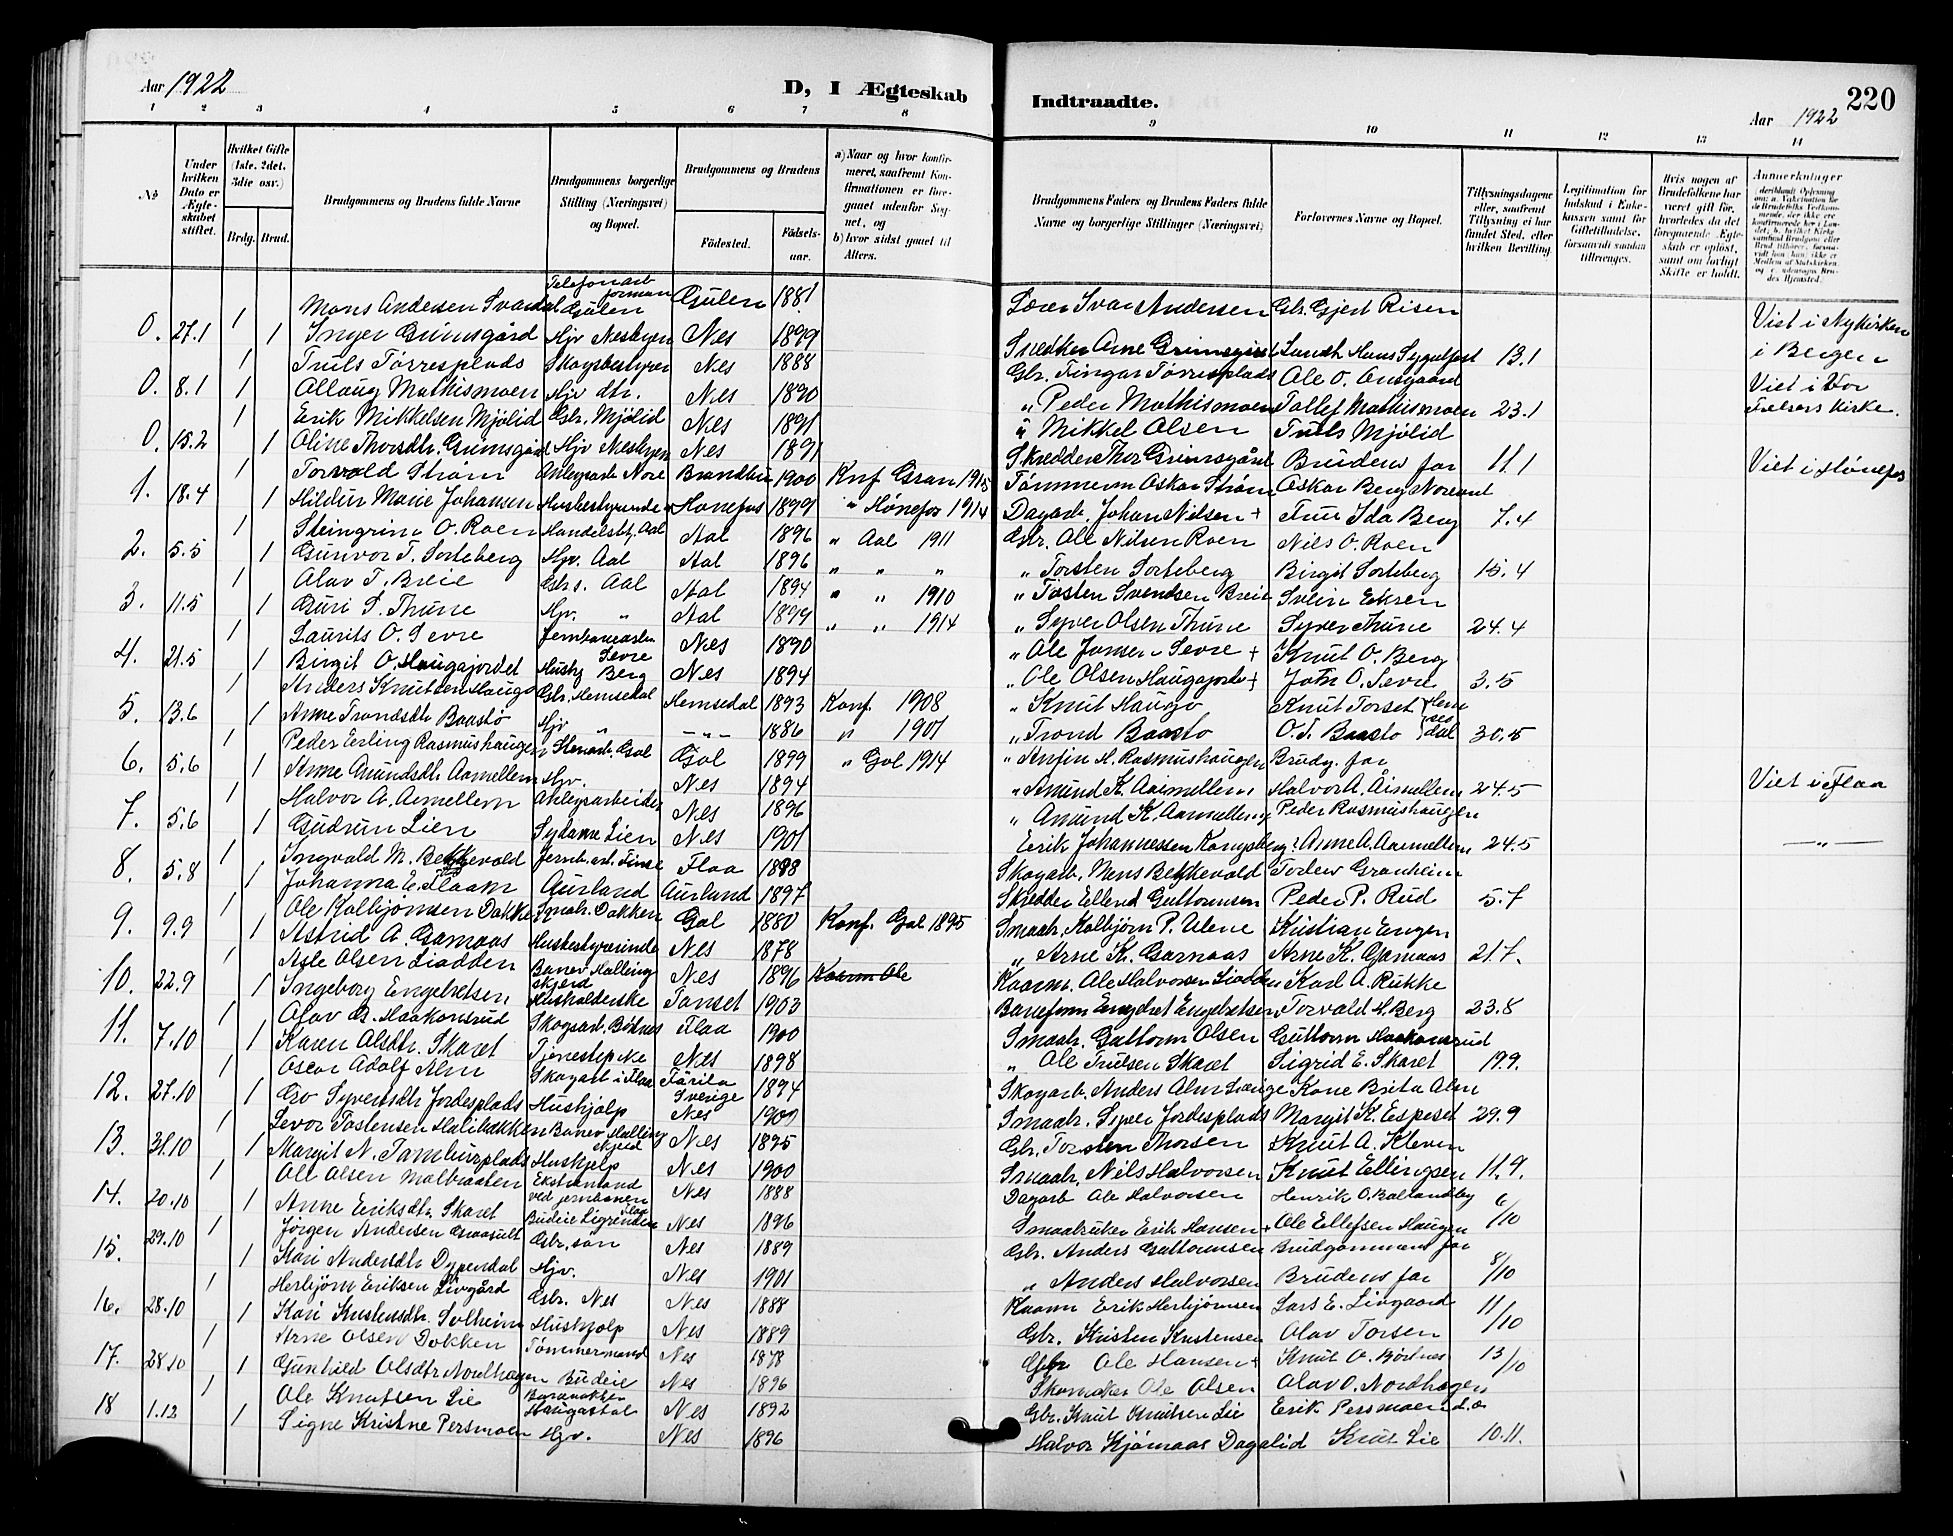 220
Aar 1922 D, I Ægteskab Indtraadte. Aar 1922
1 2 3 4 5 6 7 8 9 10 11 12 13 14
No
Under hvilken Dato er Ægteskabet stiftet.
Hvilket Gifte (1ste, 2det, 3die osv.)
Brdg. Brud.
Brudgommens og Brudens fulde Navne
Brudgommens borgerlige Stilling (Næringsvei) og Bopæl.
Brudgommens og Brudens
Födested. Födselsaar.
a) Naar og hvor konfirmeret, saafremt Konfirmationen er foregaaet udenfor Sognet, og
b) hvor sidst gaaet til Alters.
Brudgommens Faders og Brudens Faders fulde Navne og borgerlige Stillinger (Næringsvei)
Forlovernes Navne og Bopæl.
Tillysningsdagene eller, saafremt Tillysning ei har fundet Sted, efter hvilken Bevilling.
Legitimation for Indskud i Enkekassen samt for Giftetilladelse, forsaavidt saadan tiltrænges.
Hvis nogen af Brudefolkene har været gift før, hvorledes da det foregaaende Ægteskab er opløst, samt om lovligt Skifte er holdt.
Anmerkninger
Mons Andersen Svardal Telefonarb formann Gulen Gulen 1881 Lærer Ivar Andersen Gbr. Gjert Risen
0. 27.1 1 1 Inger Grimsgård Hjv Nesbyen Nes 1899 Snedker Arne Grimsgård 13.1 Viet i Nykirken i Bergen
1 Truls Tørresplads Skogbestyrer Nes 1888 Gbr. Fingar Tørresplads Ole O. Ansgaard
0. 8.1 Ollaug Mathismoen Hjv dtr. Nes 1890 " Peder Mathismoen Tollef Mathismoen 23.1 Viet i Vor Frelsers Kirke.
1 Erik Mikkelsen Mjölid Gbr. Mjölid Nes 1891 " Mikkel Olsen Truls Mjölid
0. 15.2 1 Oline Thorsdtr. Grimsgård Hjv Nesbyen Nes 1891 Skredder Thor Grimsgård Brudens far 11.1 Viet i Hønefos
1 Torvald Strøm Anlegsarb Nore Brandbu 1900 Knf Gran 1915 Tømmerm Oskar Strøm Oskar Berg Noresund
1. 18.4 1 Hildur Marie Johansen Husbestyrinde Hønefos 1899 " Hønefos 1914 Dagarb. Johan Nilsen + Fru Ida Berg 7.4
1 Steingrim O. Roen Handelsbtj. Aal Aal 1896 " Aal 1911 Gbr. Ole Nilsen Roen Nils O. Roen
2. 5.5 1 Gunvor T. Sorteberg Hjv. Aal Aal 1896 " " " " Torsten Sorteberg Birgit Sorteberg 15.4
1 Olav T. Breie Gbrs. Aal Aal 1894 " " 1910 " Tosten Svendsen Breie Svein Eksen
3. 11.5 1 Guri S. Thune Hjv. " Aal 1899 " " 1914 " Syver Olsen Thune Syver Thune 24.4
1 Laurits O. Sevre Sevre Nes 1890 " Ole Jonsen Sevre + Knut O. Berg
4. 21.5 1 Birgit O. Haugajordet Hushj Berg Nes 1894 " Ole Olsen Haugajordet + John O. Sevre 3.5
1 Anders Knutsen Haugo Gbr. Hemsedal Hemsedal 1893 Konf 1908 " Knut Haugo Knut Torset Hemsedal
5. 13.6 1 Anne Trondsdtr Baastö Hjv " -"- 1886 " 1901 " Trond Baasto O.T. Baasto 30.5
1 Peder Erling Rasmushaugen Gol Gol 1899 " Gol 1914 " Anfin H. Rasmushaugen Brudg. far
6. 5.6 1 Anne Amundsdtr Aamellem Hjv. Nes 1894 " Amund K. Aamellem Halvor A. Aamellem 24.5 Viet i Flaa
1 Halvor A. Aamellem Anlegsarbeider Nes 1896 " Amund K. Aamellem Peder Rasmushaugen
7. 5.6 1 Gudrun Lien Sydame Lien Nes 1901 Erik Johannessen Kongsberg Anne A. Aamellem 24.5 -"-
1 Ingvald M. Bekkevold Jernb. arb. Finse Flaa 1898 Skogarb. Mons Bekkevold Torlew Granheim
8. 5.8 1 Johanna E. Flaam Aurland Aurland 1897 Skredder Ellend Guttormsen Peder P. Rud 5.7
1 Ole Kolbjörnsen Dokken Smabr. Dokken Gol 1880 Konf. Gol 1895 Smaabr. Kolbjörn P. Ulene Kristian Engen
9. 9.9 1 Astrid A. Garnaas Husbestyrerinde Nes 1878 " Arne K. Garnaas Arne K. Garnaas 21.7.
1 Asle Olsen Liodden Banev Hallingskeid Nes 1896 Kaarm Ole Kaarm. Ole Halvorsen Liodden Karl A. Rukke
10. 22.9 1 Ingeborg Engebretsen Husholderske Tonset 1903 Baneform Engebret Engebretsen Torvald H. Berg 23.8
1 Olav G. Haakonsrud Skogsarb. Bökner Flaa 1900 Smaabr. Guttorm Olsen Guttorm Haakonsrud
11. 7.10 1 Karen Olsdtr. Skaret Tjenestepike Nes 1898 " Ole Trulsen Skaret Sigrid E. Skaret 19.9.
1 Oscar Adolf Alm Skogarb i Flaa Färila Sverige 1894 Skogarb. Anders Alm Sverige Kone Brita Alm
12. 27.10 1 Gro Syversdtr Jordesplads Hushjælp Nes 1900 Smaabr. Syver Jordesplads Margit K. Espeset 29.9
1 Sevor Tostensen Halibakken Banev Hallingskeid Nes 1895 Gbr. Torsten Thorsen Knut A. Kleven
13. 31.10 1 Margit N. Tamburplads Hushjelp Nes 1900 Smaabr. Nils Halvorsen Knut Ellingsen 11.9.
1 Ole Olsen Malbraaten Ekstramand ved jernbanen Flaa Nes 1888 Dagarb Ole Halvorsen Henrik O. Ballandby
14. 20.10 1 Anne Eriksdtr. Skaret Budeie Nes 1896 Smaabruker Erik Hansen + Ole Ellefsen Haugen 6/10
1 Jørgen Andersen Gbr. søn Nes 1889 Gbr. Anders Guttormsen Brudgommens far
15. 29.10 1 Kari Andersdtr Dypendal Hjv. Nes 1901 " Anders Halvorsen Brudens far 8/10
1 Herbjörn Eriksen Livgård Gbr. Nes Nes 1888 Kaarm Erik Herbjörnsen Lars E. Livgaard
16. 28.10 1 Kari Kristensdtr. Solheim Hushjelp Nes 1889 Gbr. Kristen Kristensen Olav Torsen 11/10
1 Arne Olsen Dokken Tømmermand Nes 1878 Gbr Ole Hansen + Knut O. Börtnes
17. 28.10 1 Gunhild Olsdtr Nordhagen Budeie Nes 1896 Skomaker Ole Olsen Olav O. Nordhagen 13/10
1 Ole Knutsen Lie Banevokter Haugastøl Nes 1892 Gbr. Knut Knutsen Lie Erik Persmoen
18 1.12 1 Signe Kristine Persmoen Hjv. Nes 1896 Halvor Kjörnaas Dagalid Knut Lie 10.11.